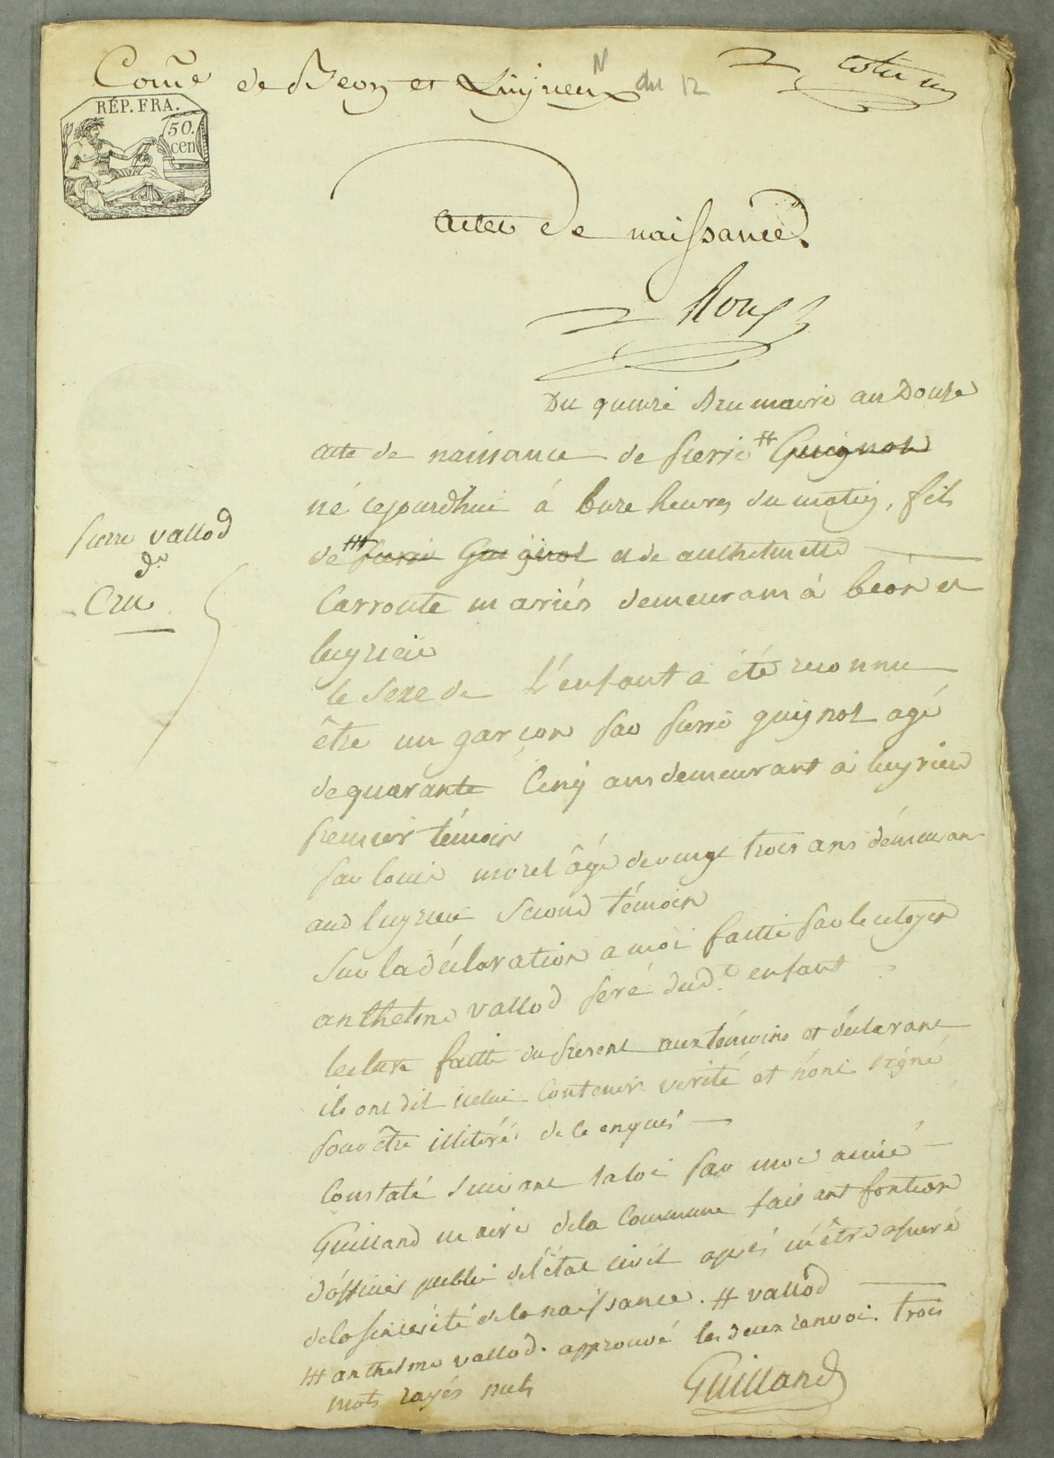 Com̃e de Beon et Luyrieux N du 12
RÉP. FRA.
50.
cen
acte de naissance
Du quinze Brumaire an Douze
acte de naissance de pierre # Guignot
né cejourdhui à onze heures du matin, fils
de ### pierre Guignot et de anthelmette
Carronte mariés demeurant à béon et
luyrieu
le sexe de L'enfant a été reconnu
être un garçon par pierre guignot agé
de quarante Cinq ans demeurant à luyrieu
premier témoin
par louis morel âgé de vingt trois ans démeurant
aud luyrieu second témoin
Sur la déclaration a moi faitte par le citoyen
anthelme vallod peré dud.t enfant
lecture faitte du present aux témoins et déclarant
ils ont dit icelui Contenir verité et n'ont signé
pour être illiteré de ce enquis
Constaté suivant la loi par moi aimé
Guilland maire de la Commune faisant fontion
d'officier public de l'état civil après m'être assuré
de la sincérité de la naissance. # vallod
### anthelme vallod. approuvé les deux renvoi. trois
mots rayés nuls
Guilland
pierre vallod
de
Cru